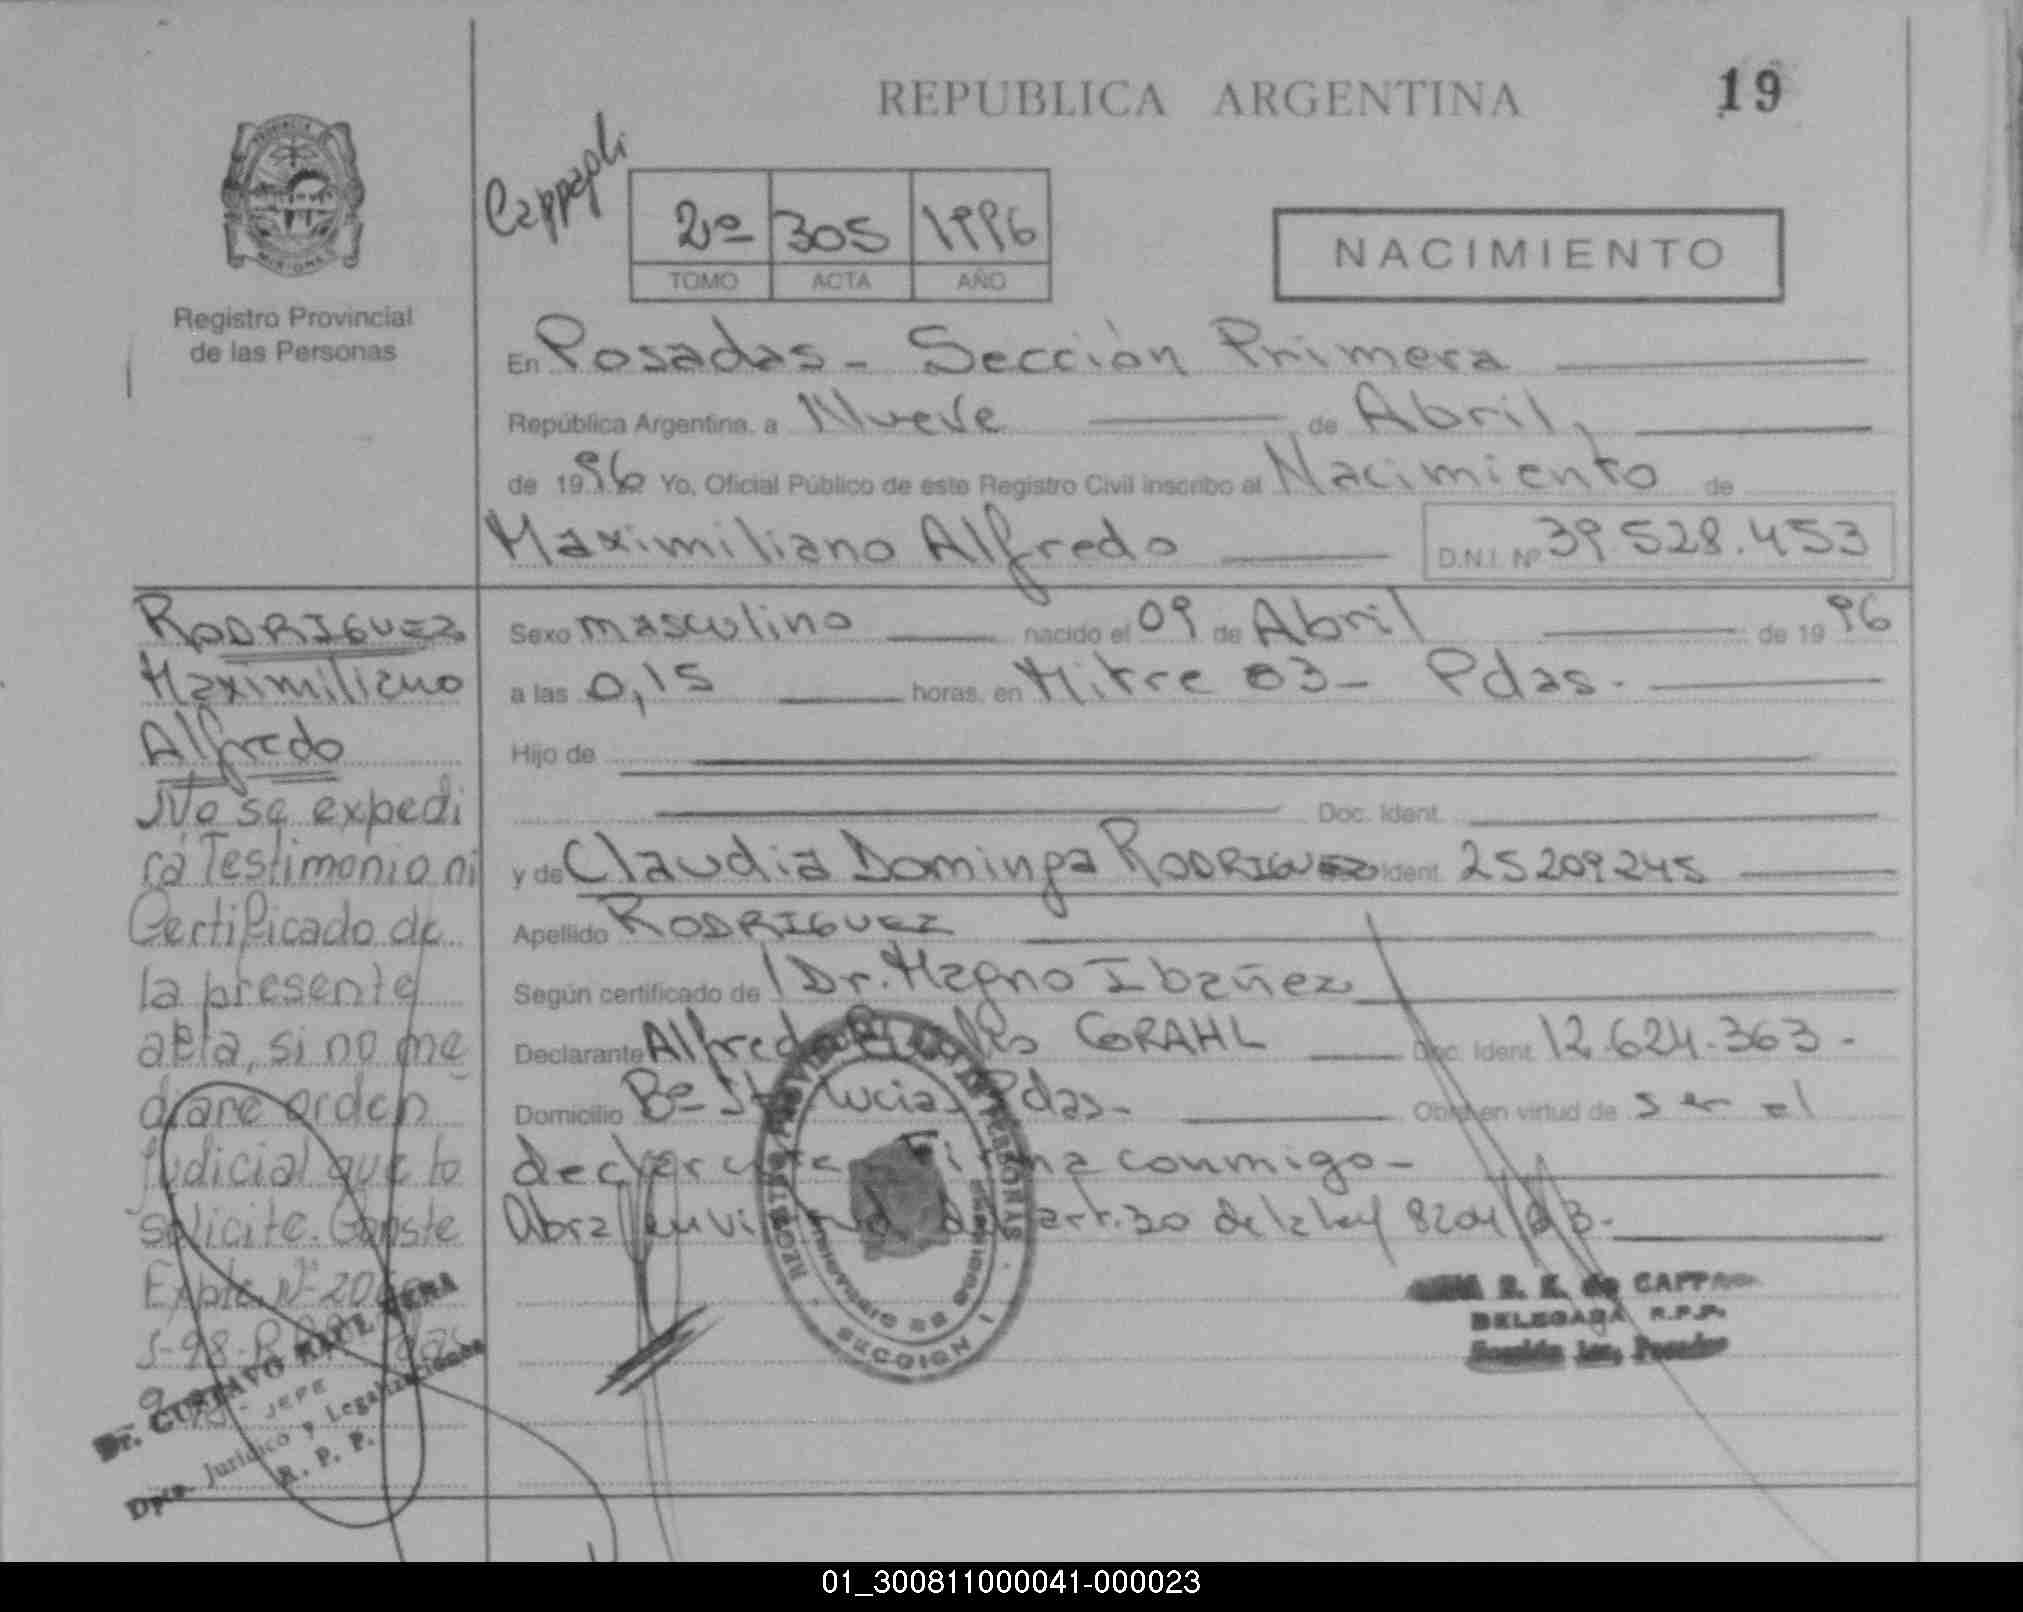 REPUBLICA ARGENTINA
19
PROVINCIA
MISIONES
Registro Provincial
de las Personas
Cappagli
2º 305 1996
TOMO ACTA AÑO
NACIMIENTO
En Posadas - Sección Primera
República Argentina, a Nueve de Abril,
de 1996 Yo, Oficial Público de este Registro Civil inscribo el Nacimiento de
Maximiliano Alfredo D.N.I. Nº 39.528.453
Sexo masculino nacido el 09 de Abril de 1996
a las 0,15 horas, en Mitre 03 - Pdas.
Hijo de
Doc. Ident.
y de Claudia Dominga RODRIGUEZ Ident. 25209245
Apellido RODRIGUEZ
Según certificado de Dr. Magno Ibañez
Declarante Alfredo GRAHL Doc. Ident. 12.624.363.-
Domicilio Bº Sta Lucia, Pdas.- Obra en virtud de ser el
declarante Firma conmigo-
Obra en virtud del art. 30 de la ley 8204/63.-
RODRIGUEZ
Maximiliano
Alfredo
No se expedi
rá Testimonio ni
Certificado de
la presente
acta, si no me
diare orden
judicial que lo
solicite. Conste
Expte. Nº
Dr. GUSTAVO RAUL VERA
JEFE
Dpto. Jurídico y Legalizaciones
R. P. P.
REGISTRO PROVINCIAL DE LAS PERSONAS
SECCION 1
R. E. de CAPPAGLI
DELEGADA R.P.P.
Sección 1ra. Posadas
01_300811000041-000023